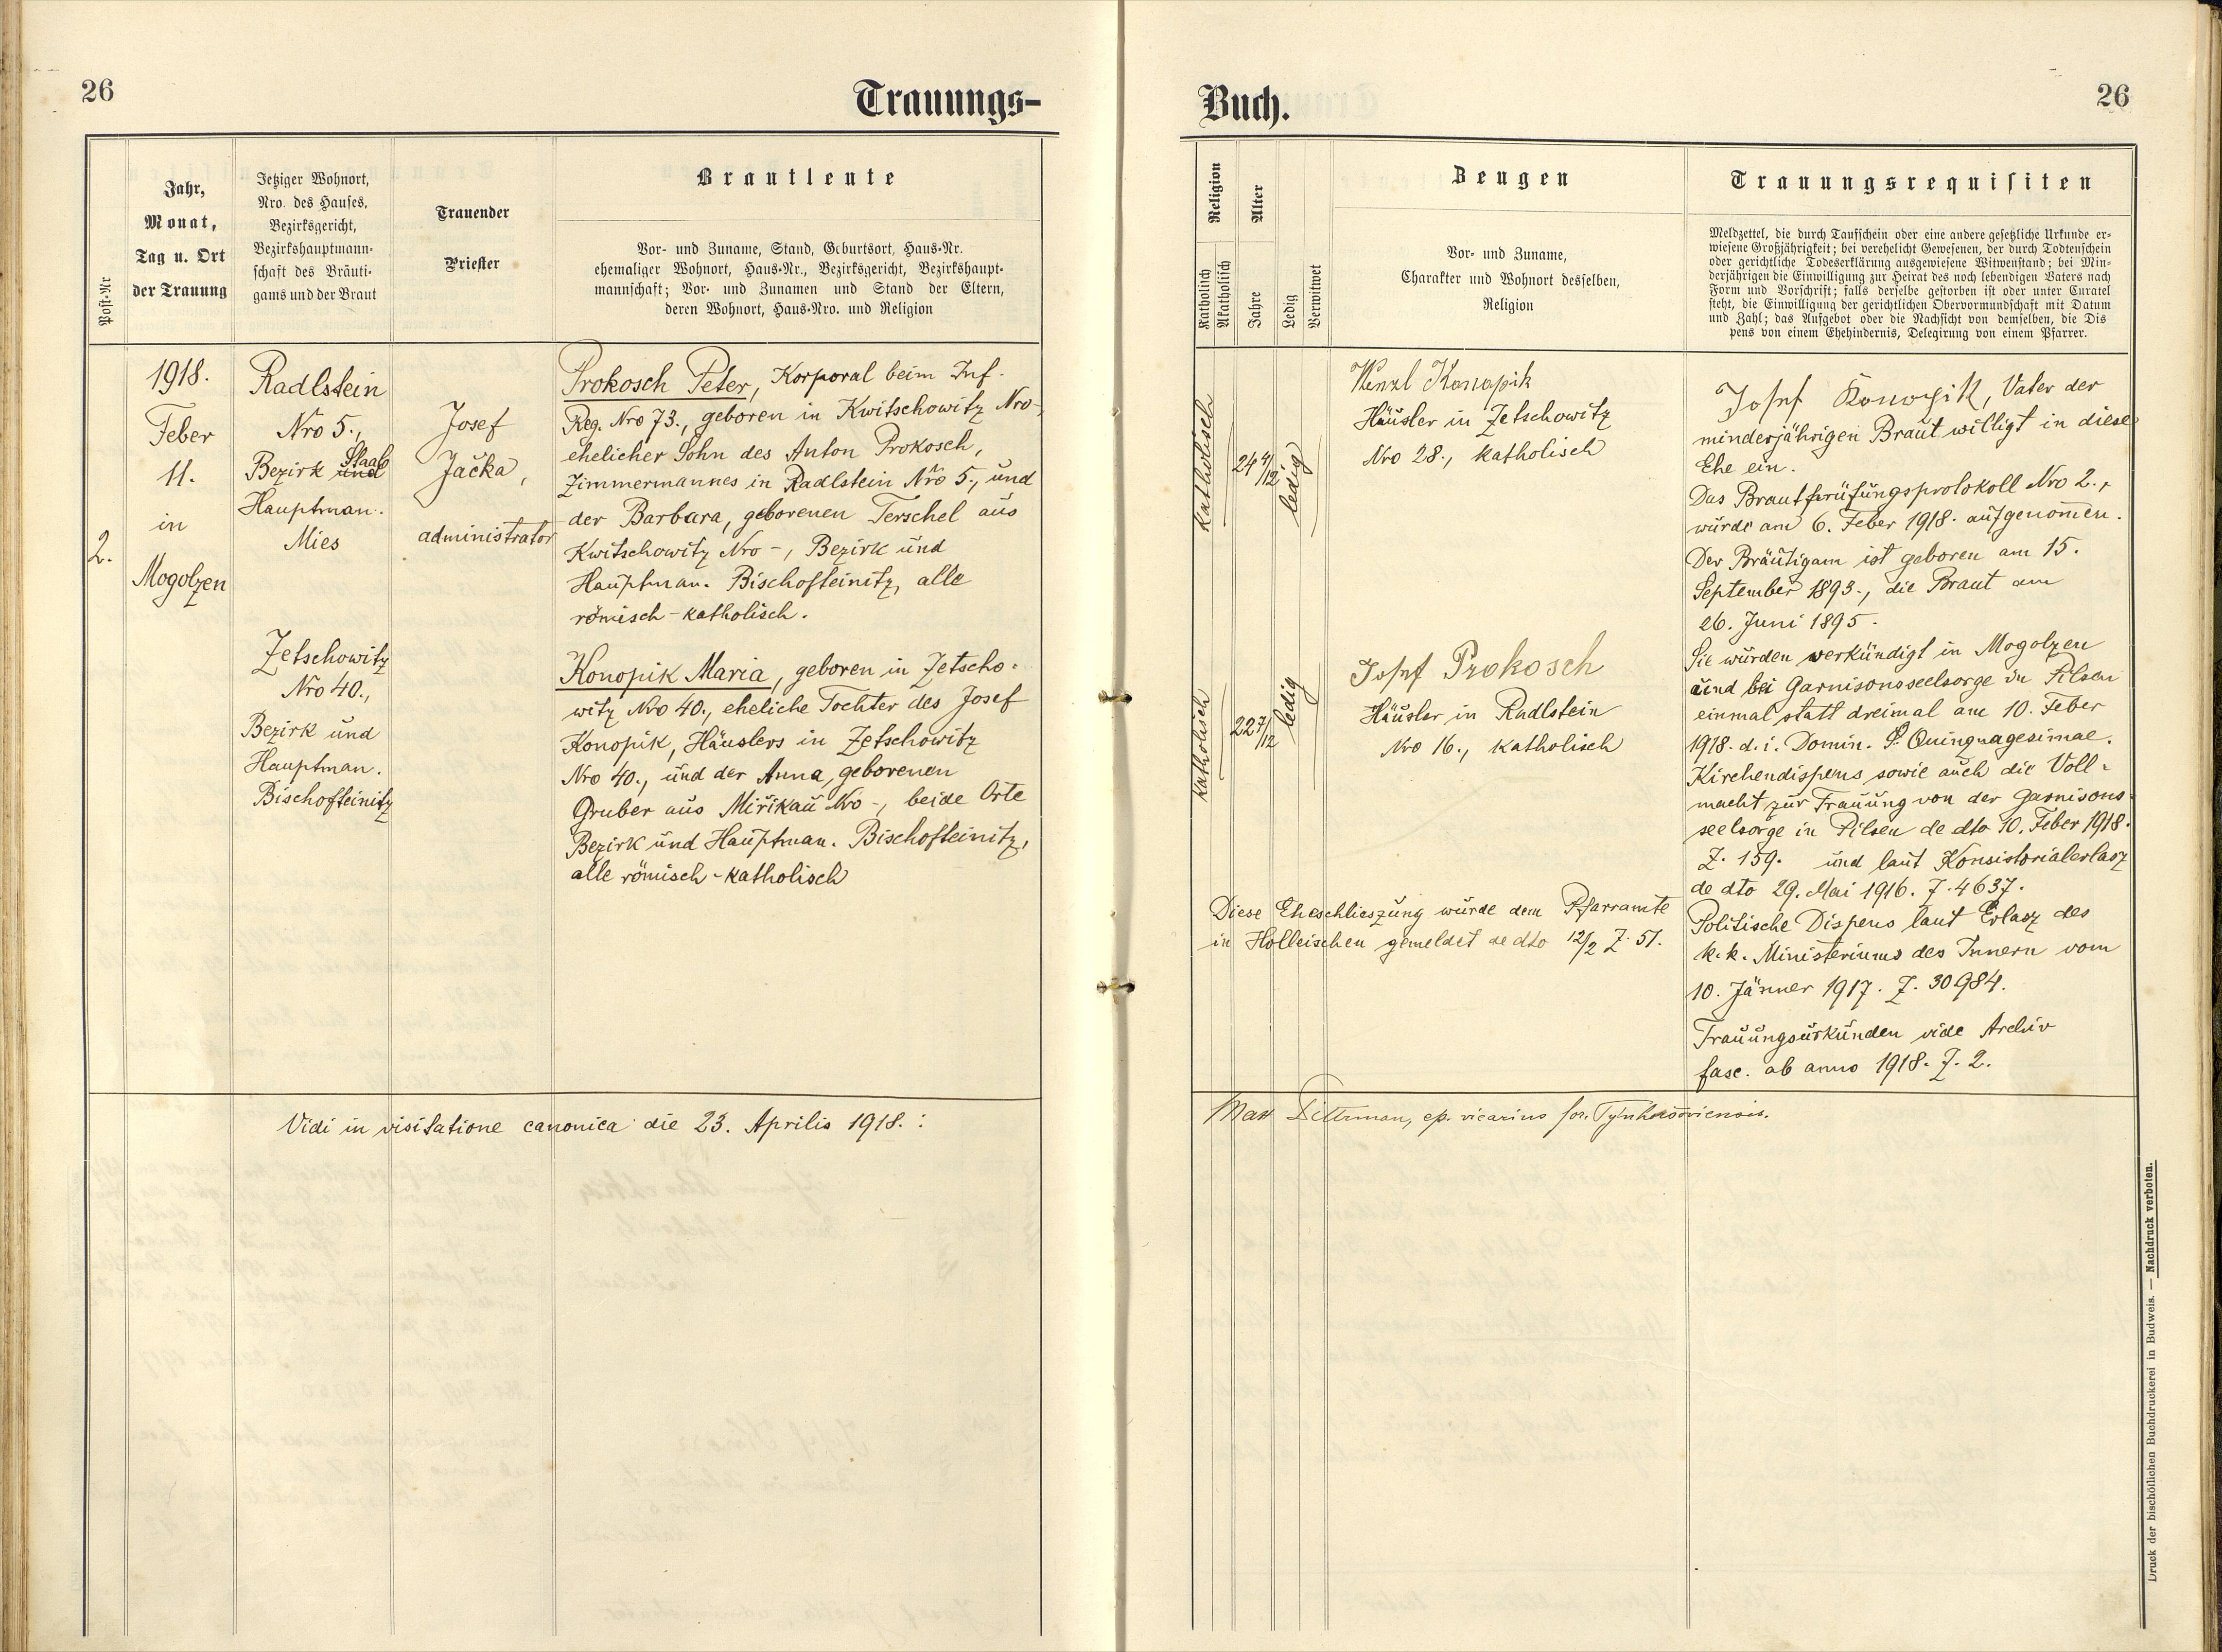 26
Trauungs-
Post-Nr
Jahr,
Monat,
Tag u. Ort
der Trauung
Jetziger Wohnort,
Nro. des Hauses,
Bezirksgericht,
Bezirkshauptmann-
schaft des Bräuti-
gams und der Braut
Trauender
Priester
Brautleute
Vor- und Zuname, Stand, Geburtsort, Haus-Nr.
ehemaliger Wohnort, Haus-Nr., Bezirksgericht, Bezirkshaupt-
mannschaft; Vor- und Zunamen und Stand der Eltern,
deren Wohnort, Haus-Nro. und Religion
2.
1918.
Feber
11.
in
Mogolzen
Radlstein
Nro 5.,
Staab
Bezirk und
Hauptman.
Mies
Josef
Jačka,
administrator
Prokosch Peter, Korporal beim Inf.
Reg. Nro 73., geboren in Kwitschowitz Nro-,
ehelicher Sohn des Anton Prokosch,
Zimmermannes in Radlstein Nro 5., und
der Barbara, geborenen Terschel aus
Kwitschowitz Nro -, Bezirk und
Hauptman. Bischofteinitz, alle
römisch-katholisch.
Zetschowitz
Nro 40.,
Bezirk und
Hauptman.
Bischofteinitz
Konopik Maria, geboren in Zetscho-
witz Nro 40., eheliche Tochter des Josef
Konopik, Häuslers in Zetschowitz
Nro 40., und der Anna, geborenen
Gruber aus Mirikau Nro -, beide Orte
Bezirk und Hauptman. Bischofteinitz,
alle römisch-katholisch
Vidi in visitatione canonica die 23. Aprilis 1918. :
Buch.
26
Religion
Katholisch
Akatholisch
Alter
Jahre
Ledig
Verwitwet
Zeugen
Vor- und Zuname,
Charakter und Wohnort desselben,
Religion
Trauungsrequisiten
Meldzettel, die durch Taufschein oder eine andere gesetzliche Urkunde er-
wiesene Großjährigkeit; bei verehelicht Gewesenen, der durch Todtenschein
oder gerichtliche Todeserklärung ausgewiesene Witwenstand; bei Min-
derjährigen die Einwilligung zur Heirat des noch lebendigen Vaters nach
Form und Vorschrift; falls derselbe gestorben ist oder unter Curatel
steht, die Einwilligung der gerichtlichen Obervormundschaft mit Datum
und Zahl; das Aufgebot oder die Nachsicht von demselben, die Dis
pens von einem Ehehindernis, Delegirung von einem Pfarrer.
katholisch
24 4/12
ledig
Wenzl Konopik
Häusler in Zetschowitz
Nro 28., katholisch
katholisch
22 7/12
ledig
Josef Prokosch
Häusler in Radlstein
Nro 16., katholisch
Diese Eheschlieszung wurde dem Pfarramte
in Holleischen gemeldet de dto 12/2 Z. 51.
Josef Konopik, Vater der
minderjährigen Braut willigt in diese
Ehe ein.
Das Brautprüfungsprotokoll Nro 2.,
wurde am 6. Feber 1918. aufgenom̅en.
Der Bräutigam ist geboren am 15.
September 1893., die Braut am
26. Juni 1895.
Sie wurden verkündigt in Mogolzen
und bei Garnisonsseelsorge in Pilsen
einmal statt dreimal am 10. Feber
1918. d. i. Domin. Quinquagesimae.
Kirchendispens sowie auch die Voll-
macht zur Trauung von der Garnisons-
seelsorge in Pilsen de dto 10. Feber 1918.
Z. 159. und laut Konsistorialerlasz
de dto 29. Mai 1916. Z. 4637.
Politische Dispens laut Erlasz des
k. k. Ministeriums des Innern vom
10. Jänner 1917. Z. 30984.
Trauungsurkunden vide Archiv
fasc. ab anno 1918. Z. 2.
Max Dittrman, ep. vicarius for.
Druck der bischöflichen Buchdruckerei in Budweis. — Nachdruck verboten.